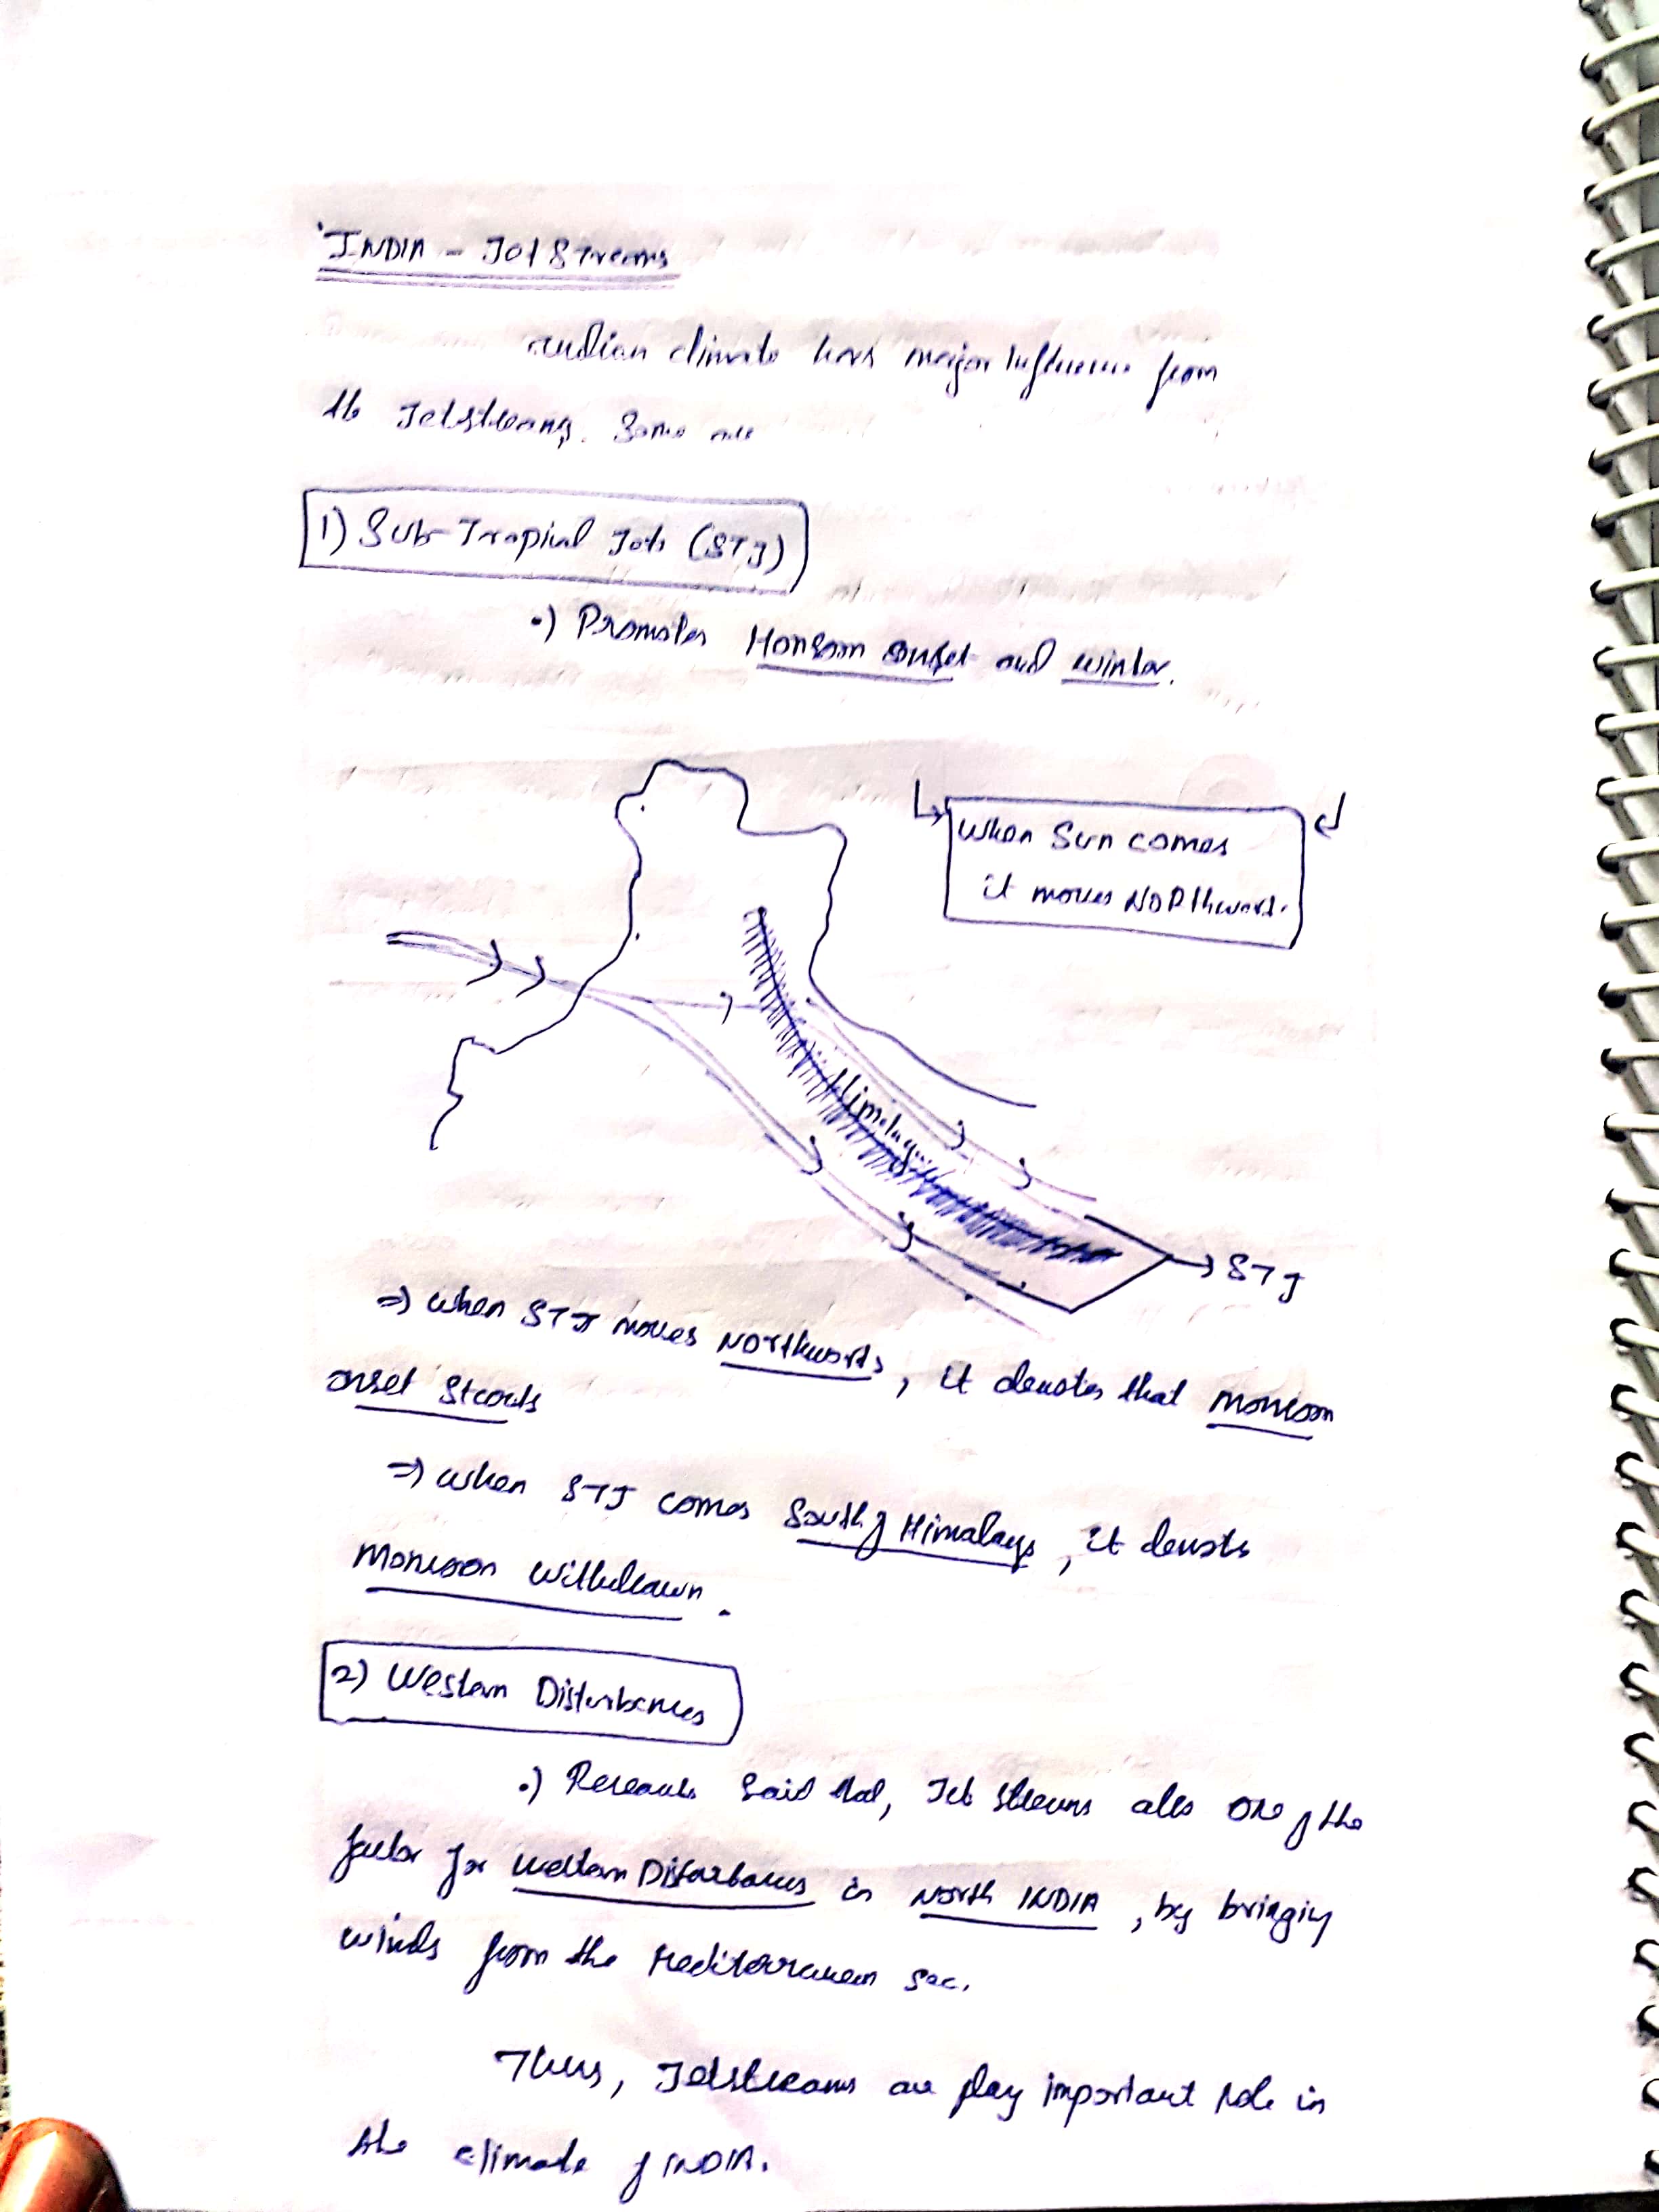 INDIA - Jet Streams
Indian climate has major Influence from
the Jetstreams. Some are
1) Sub-Tropical Jets (STJ)
•) Promotes Monsoon onset and winter.
When Sun comes
it moves NORthward.
Himalayas
STJ
=> when STJ moves Northwards, it denotes that Monsoon
onset Starts
=> when STJ comes South of Himalays, it denots
Monsoon withdrawn.
2) Western Disturbances
•) Research Said that, Jet streams also one of the
factor for Western Disturbances in North INDIA, by bringing
winds from the Mediterranean sea.
Thus, Jetstreams are play important role in
the climate of INDIA.